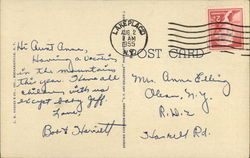 LAKE PLACID
AUG 2
9 AM
1955
N.Y.
2¢
POST CARD
Hi Aunt Anne,
Having a vacation
in the mountains
this year. Have all
children with us
except baby Jeff.
Love,
Bob & Harriett
Mrs. Anne
Olean, N.Y.
R.D. 2
Haskell Rd.